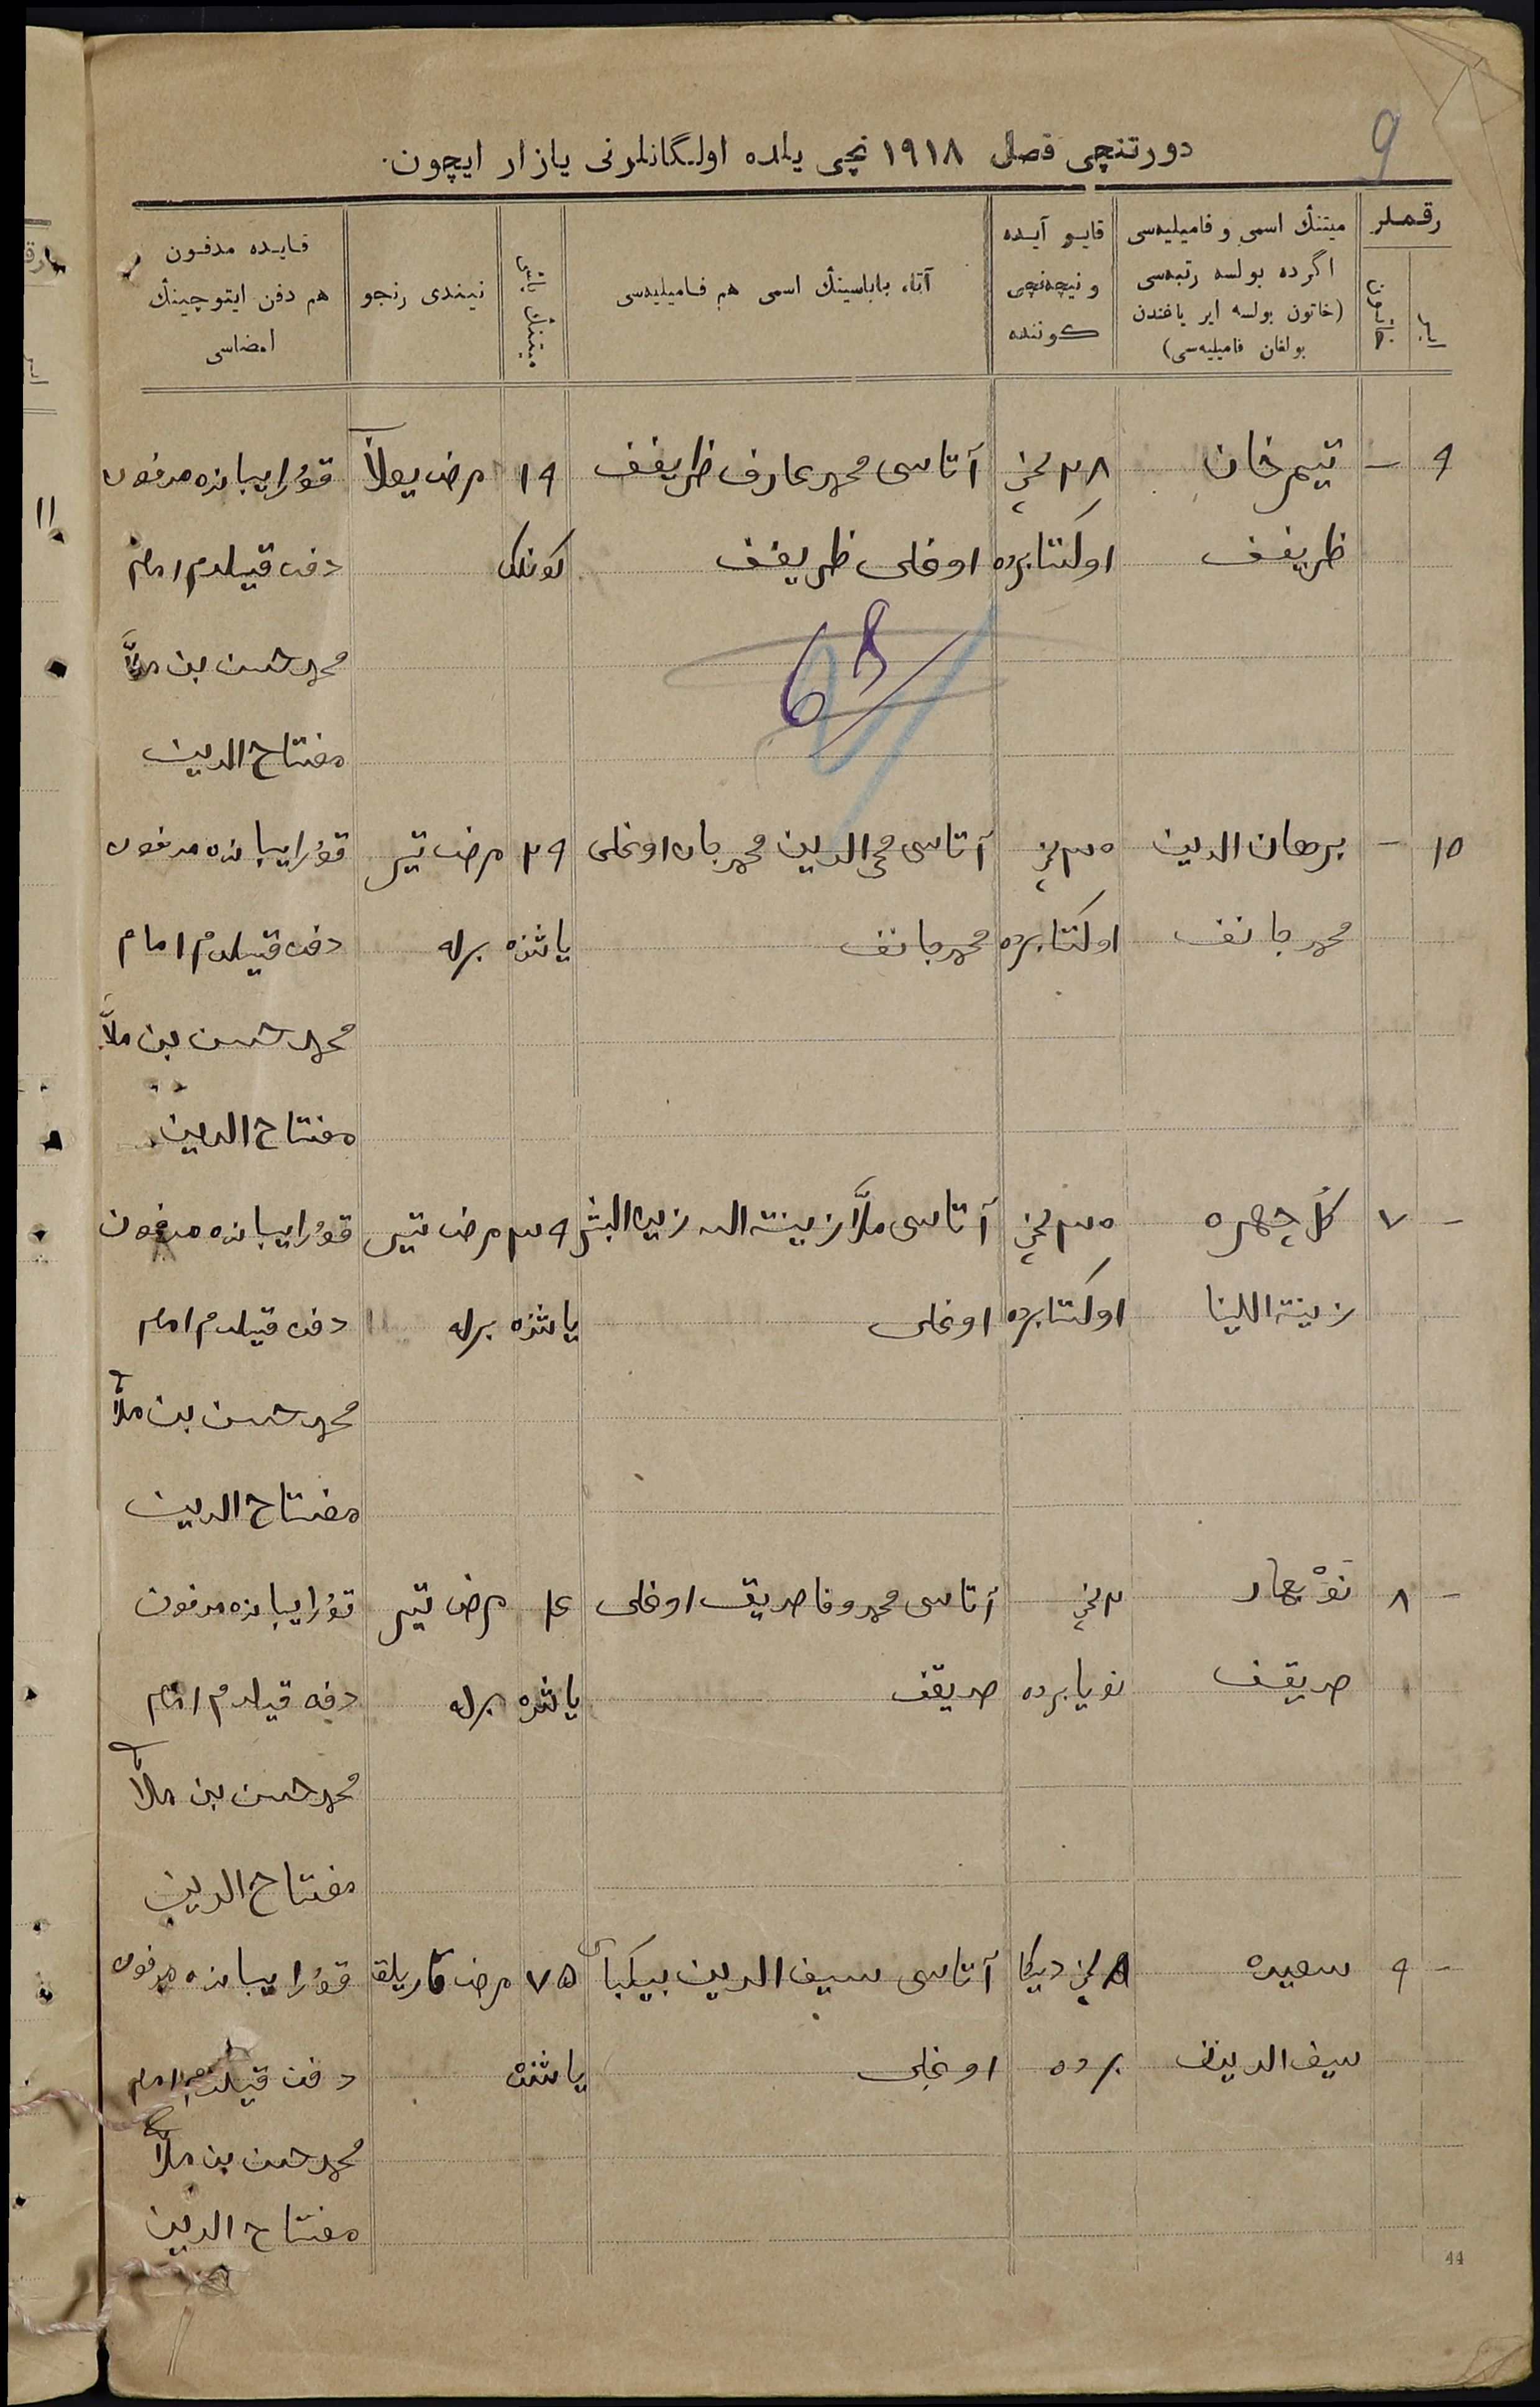 9
دورتنچی فصل ١٩١٨ نچی یلده اولگانلرنی یازار ایچون.
رقملر
میتنڭ اسمی و فامیلیه‌سی اگرده بولسه رتبه‌سی (خاتون بولسه ایر یاغندن بولغان فامیلیه‌سی)
قایو آیده ونیچه‌نچی كوننده
آتا، باباسینڭ اسمی هم فامیلیه‌سی
میتنڭ یاشی
نیندی رنجو
قایده مدفون هم دفن ایتوچینڭ امضاسی
٩ – تیم خان ٢٨ نچی آتاسی محمد عارف ظریفف ١٩ مرض یولا قۇرایباده مدفون
ظریفف اوكتابرده اوغلی ظریفف كونلك دفن قیلدم امام
محمد حسن بن ملاّ
مفتاح الدین
68
١٥ – برهان الدین ٣٠ نچی آتاسی محی الدین محمد جان اوغلی ٢٩ مرض تیر قۇرایباده مدفون
محمد جانف اوكتابرده محمد جانف یاشنده برله دفن قیلدم امام
محمد حسن بن ملاّ
مفتاح الدین
– ٧ گل چهره ٣٠ نچی آتاسی ملاّ زینة الله ٣٩ مرض تیر قۇرایباده مدفون
زینة اللینا اوكتابرده اوغلی یاشنده برله دفن قیلدم امام
محمد حسن بن ملاّ
مفتاح الدین
– ٨ نۇبهار ٢ نچی آتاسی محمد وفا صدیق اوغلی ١٤ مرض تیر قۇرایباده مدفون
صدیقف نویابرده صدیقف یاشنده برله دفن قیلدم امام
محمد حسن بن ملاّ
مفتاح الدین
– ٩ سعیده ٨ نچی دیكا آتاسی سیف الدین بیكبای ٧٥ مرض قاریلق قۇرایباده مدفون
سیف الدینف برده اوغلی یاشنده دفن قیلدم امام
محمد حسن بن ملاّ
مفتاح الدین
44
11